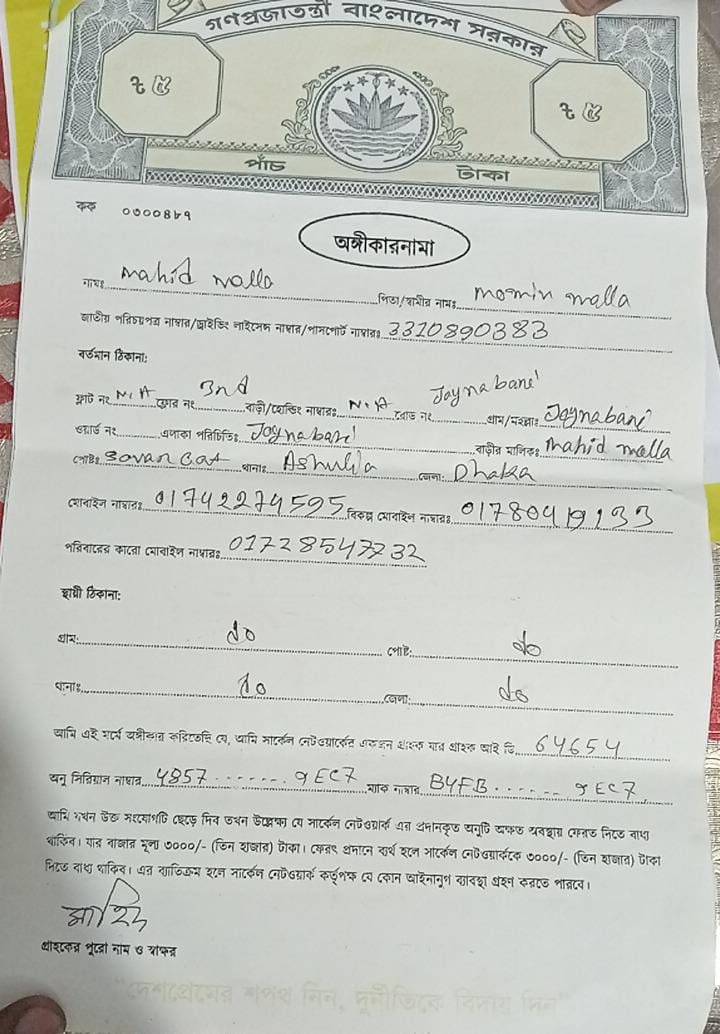 গণপ্রজাতন্ত্রী বাংলাদেশ সরকার
৳ ৫ ৳ ৫
পাঁচ টাকা
কক ০৩০০৪৮৭
অঙ্গীকারনামা
নামঃ mahid molla পিতা/স্বামীর নামঃ momin molla
জাতীয় পরিচয়পত্র নাম্বার/ড্রাইভিং লাইসেন্স নাম্বার/পাসপোর্ট নাম্বারঃ 3310890383
বর্তমান ঠিকানা:
ফ্লাট নং N.A ফ্লোর নং 3nd বাড়ী/হোল্ডিং নাম্বারঃ N.A রোড নং Joynabari গ্রাম/মহল্লাঃ Joynabari
ওয়ার্ড নং এলাকা পরিচিতিঃ Joynabari বাড়ীর মালিকঃ mahid molla
পোষ্টঃ Savar Cat থানাঃ Ashulia জেলা: Dhaka
মোবাইল নাম্বারঃ 01742274595 বিকল্প মোবাইল নাম্বারঃ 01780419133
পরিবারের কারো মোবাইল নাম্বারঃ
স্থায়ী ঠিকানা:
গ্রাম: do পোষ্ট: do
থানাঃ do জেলা: do
আমি এই মর্মে অঙ্গীকার করিতেছি যে, আমি সার্কেল নেটওয়ার্কের একজন গ্রাহক যার গ্রাহক আই ডি 64654
অনু সিরিয়াল নাম্বার 4857.......9EC7 ম্যাক নাম্বার B4FB......9EC7
আমি যখন উক্ত সংযোগটি ছেড়ে দিব তখন উল্লেক্ষ্য যে সার্কেল নেটওয়ার্ক এর প্রদানকৃত অনুটি অক্ষত অবস্থায় ফেরত দিতে বাধ্য
থাকিব। যার বাজার মূল্য ৩০০০/- (তিন হাজার) টাকা। ফেরৎ প্রদানে ব্যর্থ হলে সার্কেল নেটওয়ার্ককে ৩০০০/- (তিন হাজার) টাকা
দিতে বাধ্য থাকিব। এর ব্যতিক্রম হলে সার্কেল নেটওয়ার্ক কর্তৃপক্ষ যে কোন আইনানুগ ব্যাবস্থা গ্রহণ করতে পারবে।
মাহিদ
গ্রাহকের পুরো নাম ও স্বাক্ষর
"দেশপ্রেমের শপথ নিন, দুর্নীতিকে বিদায় দিন"